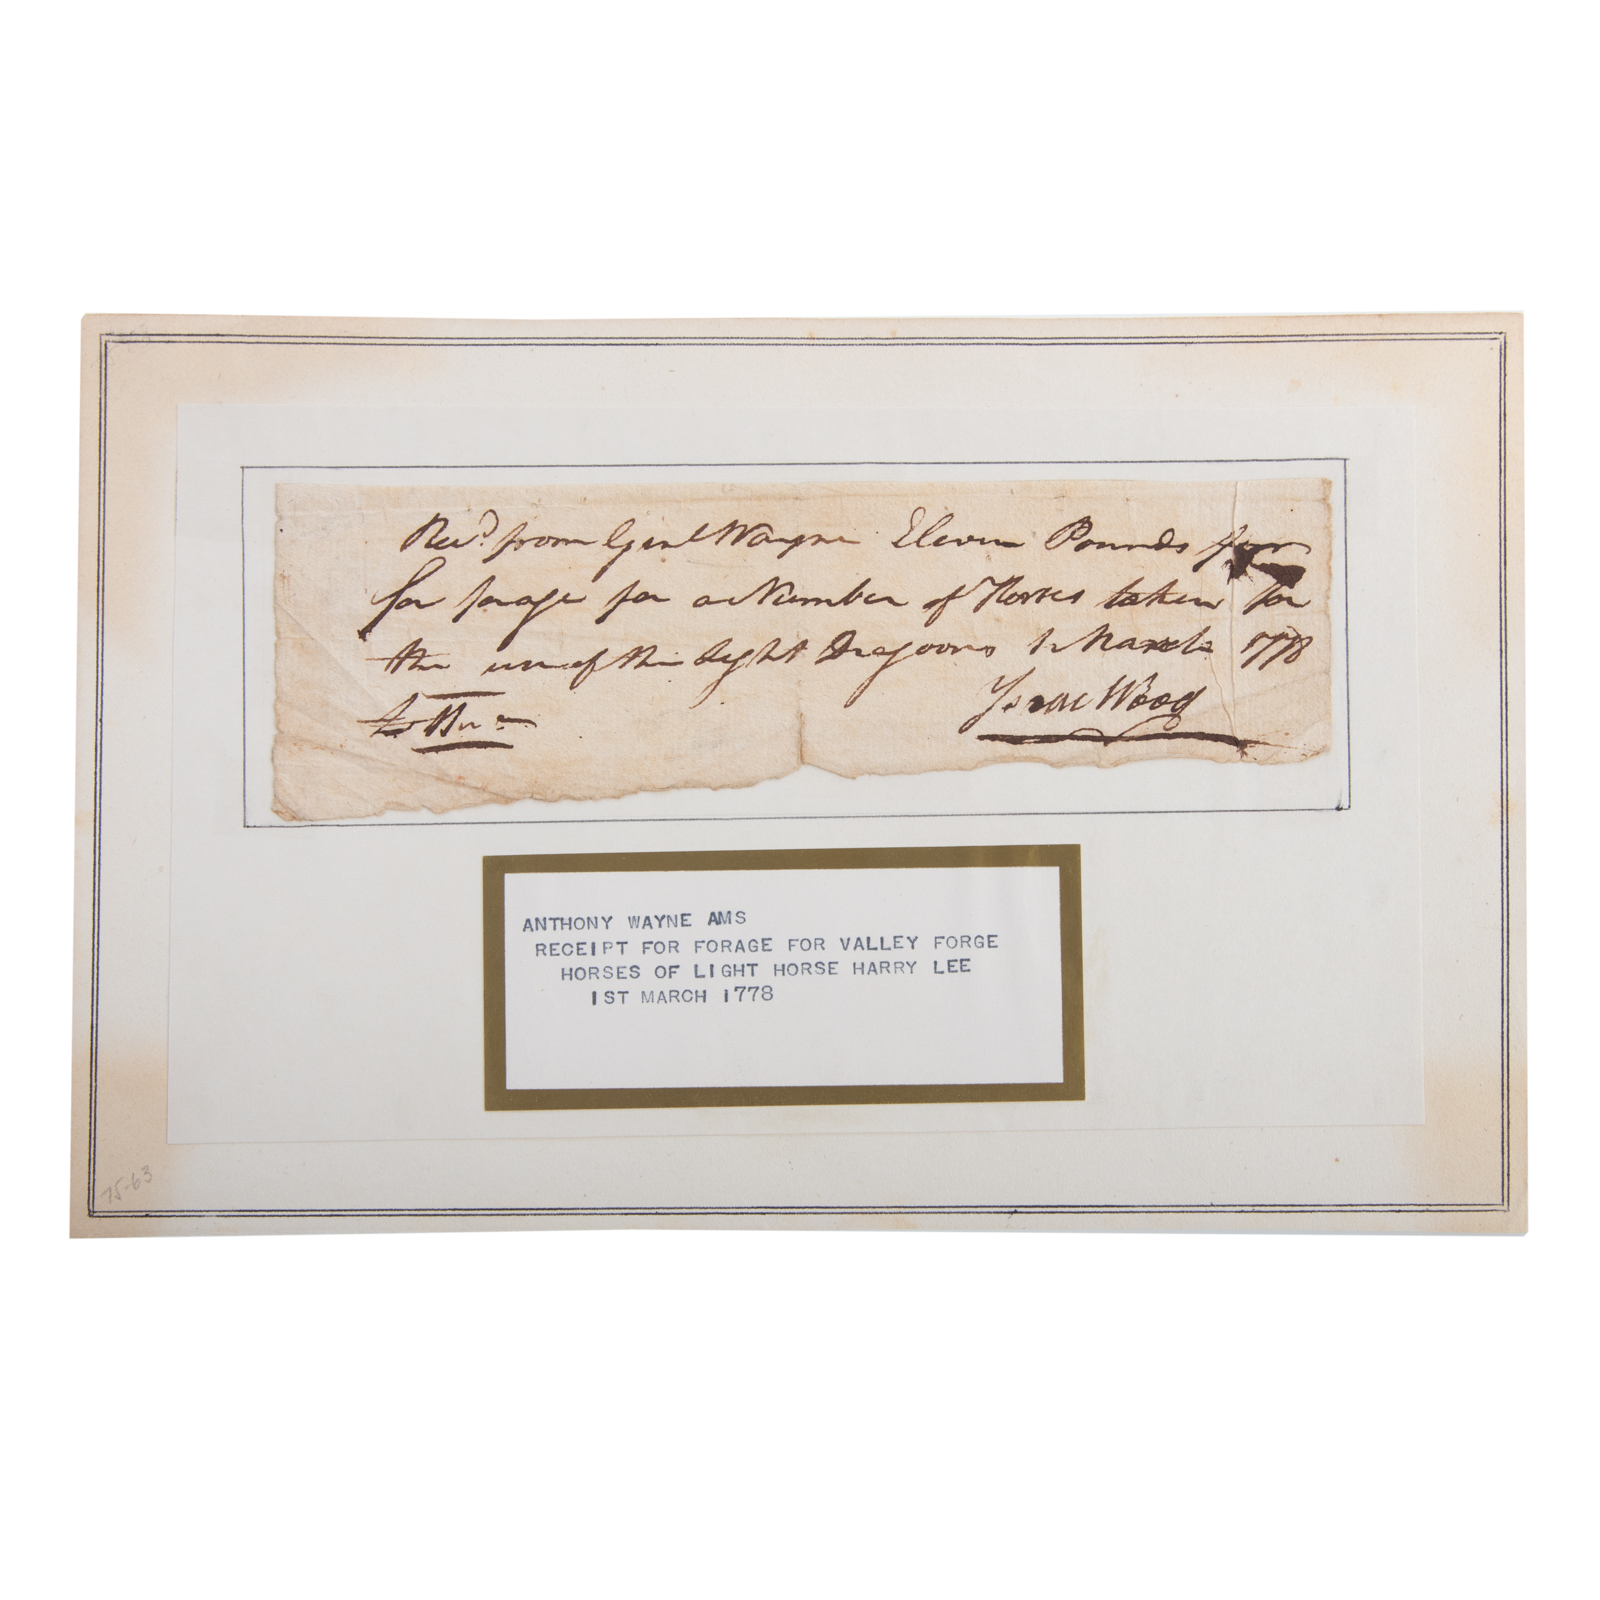 Recd. from Genl Wayne Eleven Pounds for
for forage for a Number of Horses taken for
the use of the Light Dragoons 1t March 1778
Isaac Wood
ANTHONY WAYNE AMS
RECEIPT FOR FORAGE FOR VALLEY FORGE
HORSES OF LIGHT HORSE HARRY LEE
1ST MARCH 1778
75-63